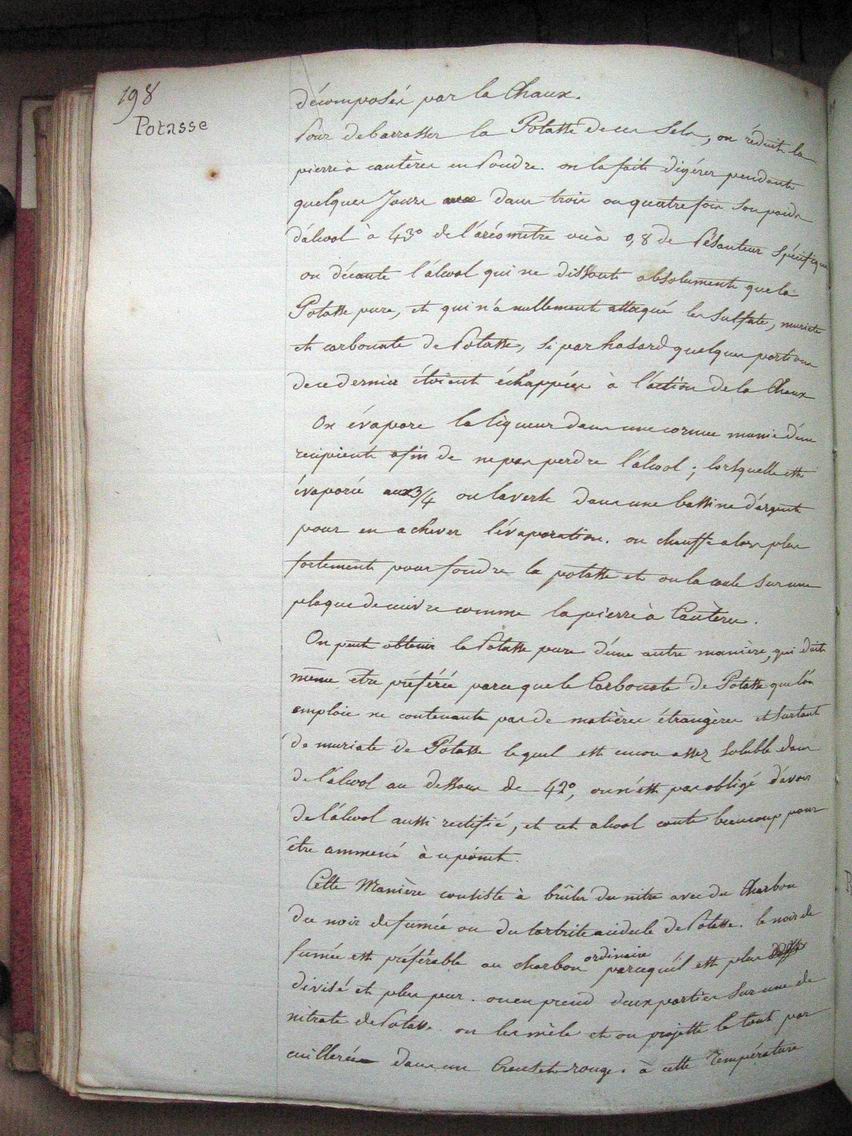 198
Potasse
décomposée par la Chaux.
Pour debarrasser la Potasse de ces Sels, on réduit la
pierre à cautères en Poudre. on la fait digérer pendant
quelques Jours dans trois ou quatre fois son poids
d'alcool à 43° de l'aréomètre ou à 0,8 de Pésanteur Spécifique
on décante l'alcool qui ne dissout absolument que la
Potasse pure, et qui n'a nullement attaqué les Sulfate, muriate
et carbonate de Potasse, Si par hasard quelques portions
de ce dernier étoient échappées à l'action de la Chaux
On évapore la liqueur dans une cornue munie d'un
recipient afin de ne pas perdre l'alcool ; lorsquelle est
évaporée aux 3/4 on la verse dans une bassine d'argent
pour en achever l'évaporation. on chauffe alors plus
fortement pour fondre la potasse et on la coule Sur une
plaque de cuivre comme la pierre à Cautere.
On peut obtenir la Potasse pure d'une autre manière, qui doit
même être préférée parceque le Carbonate de Potasse que l'on
emploie ne contenant pas de matières étrangères et surtout
de muriate de Potasse lequel est encore assez Soluble dans
de l'alcool au dessous de 42°, on n'est pas obligé d'avoir
de l'alcool aussi rectifié, et cet alcool coute beaucoup pour
être ammené à ce point.
Cette Manière consiste à brûler du nitre avec du Charbon
du noir de fumée ou du tartrite acidule de Potasse. le noir de
fumée est préférable au charbon ordinaire parcequ'il est plus
divisé et plus pur. on en prend deux parties Sur une de
nitrate de Potasse. on les mêle et on projette le tout par
cuillerée dans un Creuset rouge. à cette Température